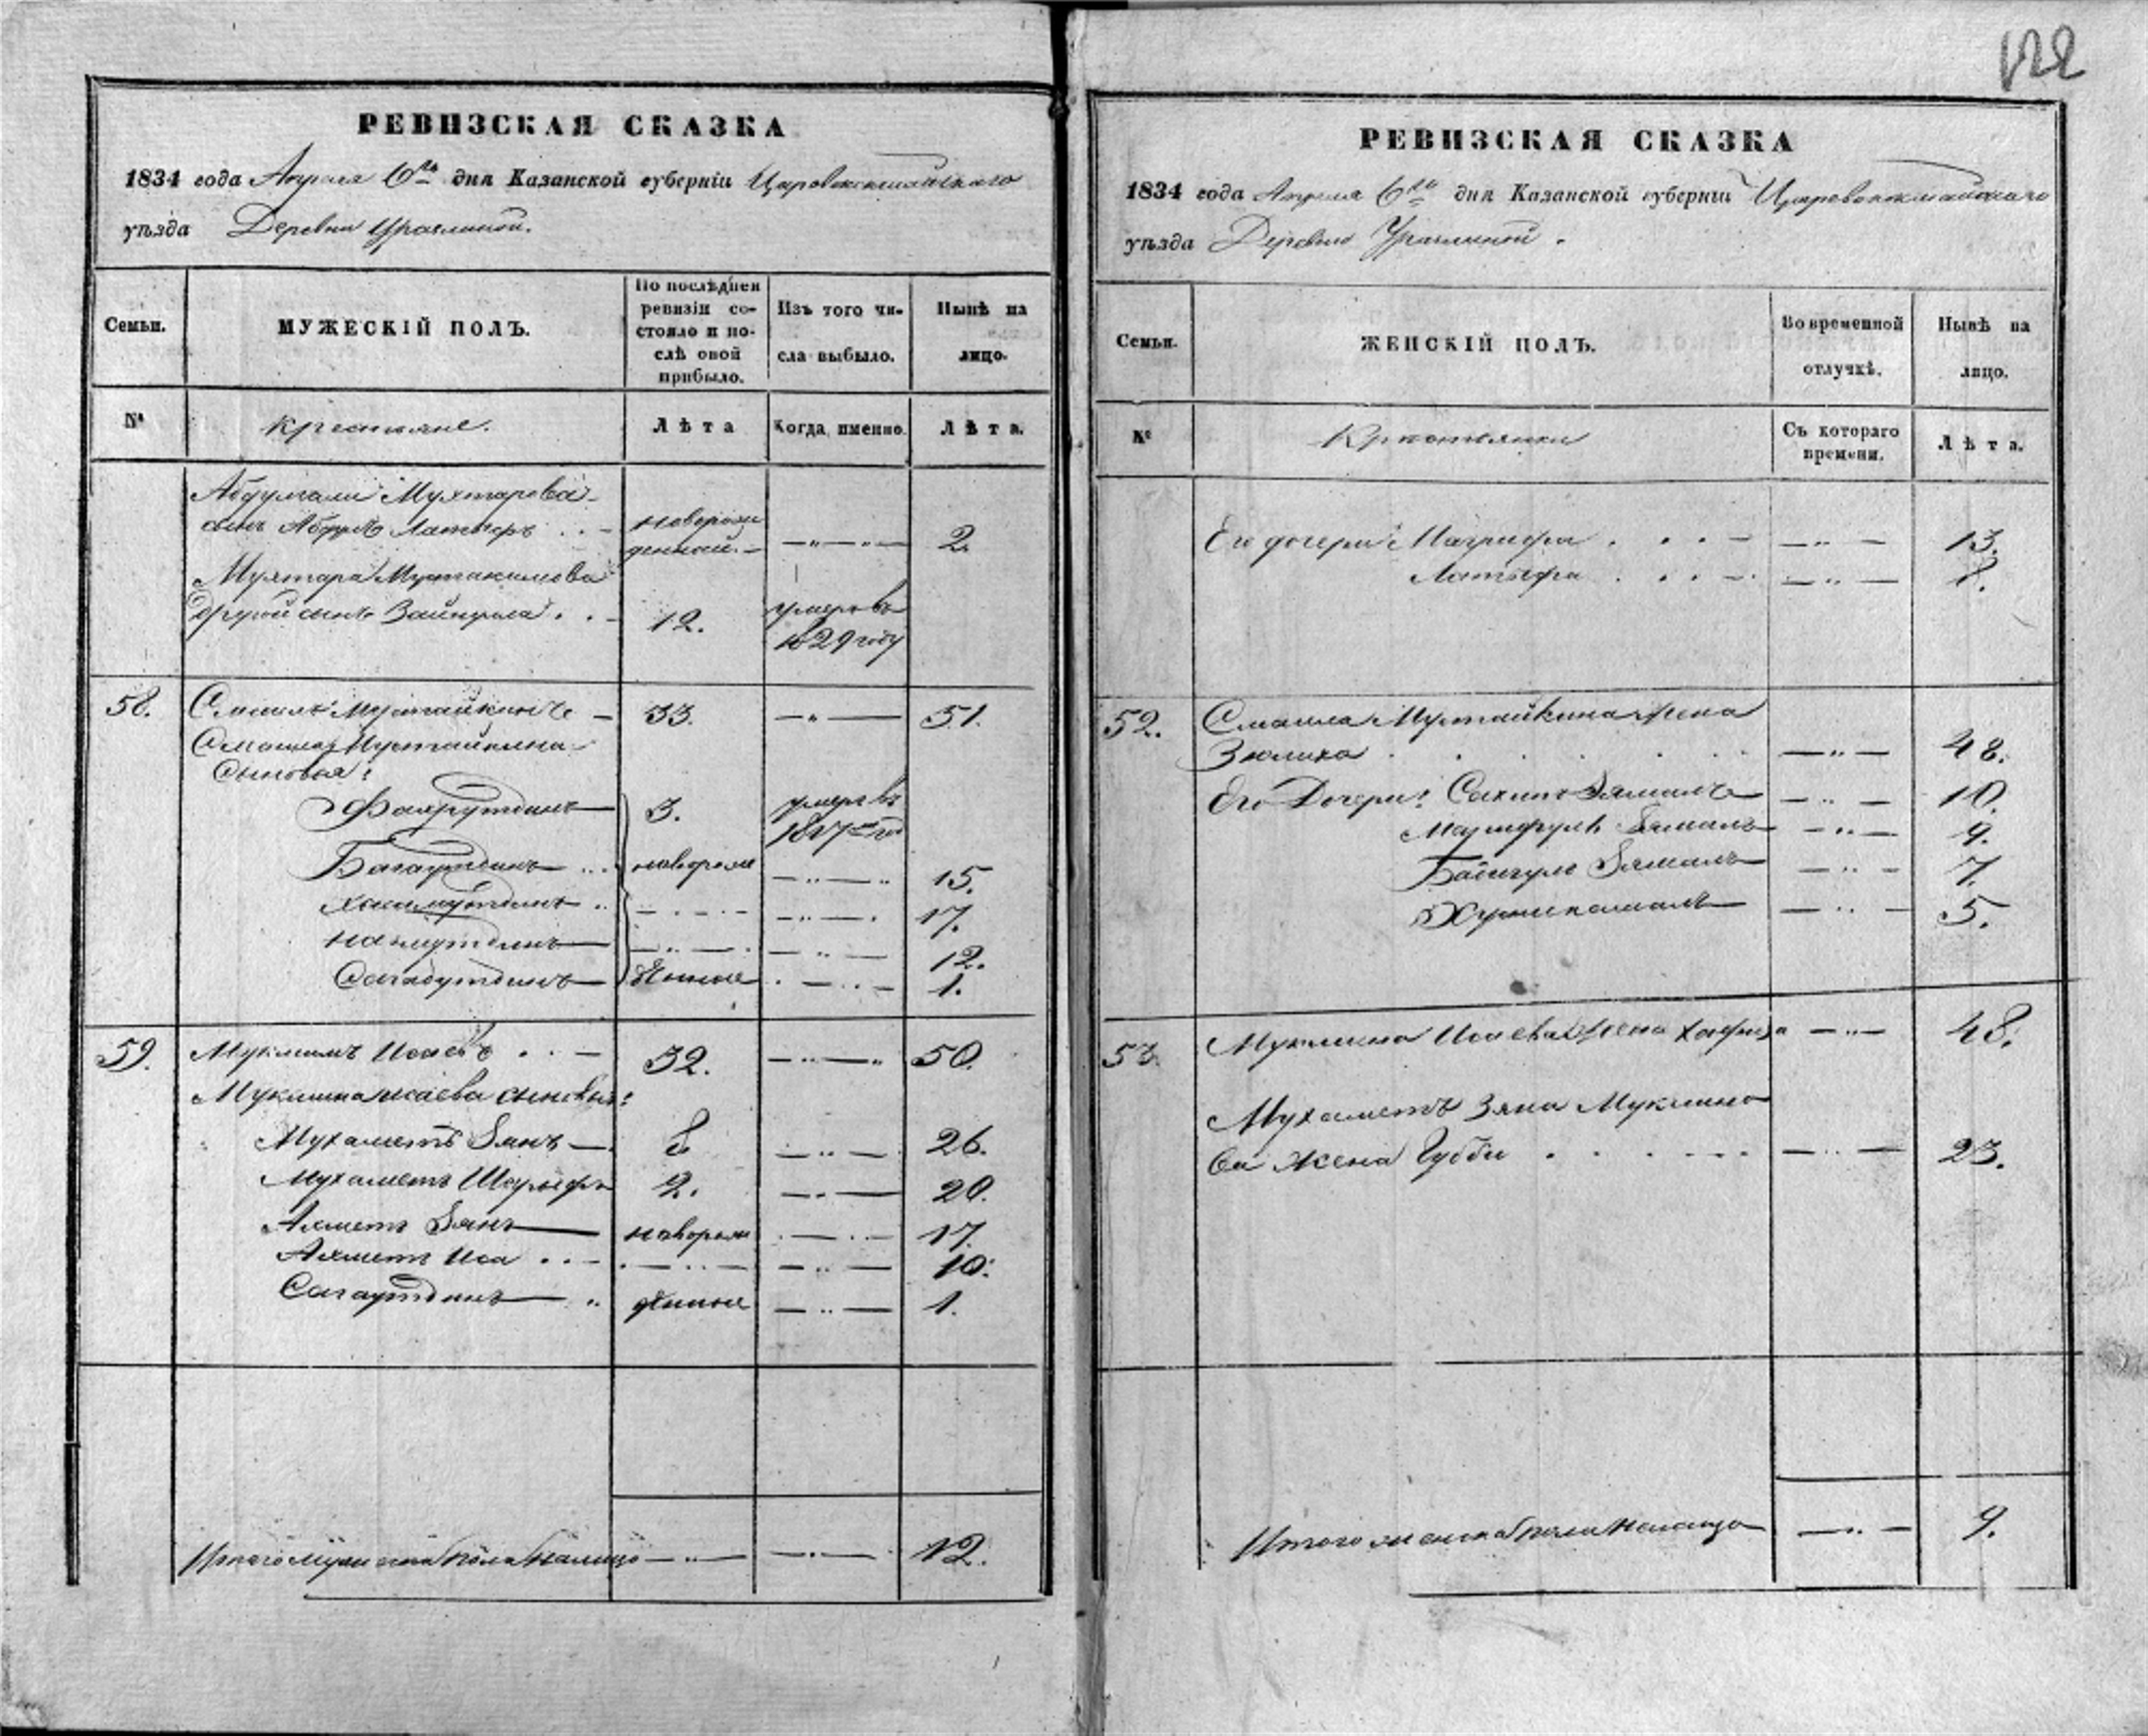 122
РЕВИЗСКАЯ СКАЗКА
1834 года Апреля 6го дня Казанской губерніи Царевококшайскаго
уѣзда Деревни Урачлиной.
Семьи.
МУЖЕСКІЙ ПОЛЪ.
По послѣдней ревизіи состояло и послѣ оной прибыло.
Изъ того числа выбыло.
Нынѣ на лицо.
№
крестьяне.
Лѣта
Когда именно.
Лѣта.
Мухтарова
сынъ Абдулъ Латыфъ новорож
денной. — 2.
Мухтара Мустакимова
другой сынъ Зайнулла 12. умеръ въ
1829 году
58. Смаилъ Мустайкинъ — 33. — 51.
Смаила Мустайкина
сыновья:
Фахрутдинъ 3. умеръ въ
1817 году
Багаутдинъ новорож — 15.
Хисамутдинъ — 17.
12.
Сагабутдинъ — 1.
59. Мукминъ Исаевъ — 32. — 50.
Мукмина Исаева сыновья:
Мухаметъ Зянъ — 8 — 26.
Мухаметъ Шарыфъ 2. — 20.
Ахметъ Зянъ новорож — 17.
Ахметъ Иса — 10.
Сагаутдинъ — 1.
Итого мужеска пола налицо — 12.
РЕВИЗСКАЯ СКАЗКА
1834 года Апреля 6го дня Казанской губерніи Царевококшайскаго
уѣзда Деревни Урачлиной.
Семьи.
ЖЕНСКІЙ ПОЛЪ.
Во временной отлучкѣ.
Нынѣ на лицо.
№
Крестьянки
Съ котораго времени.
Лѣта.
Его дочери: Магруфа — 13.
Латыфа — 8.
52. Смаила Мустайкина жена
Зюлиха — 48.
Его Дочери: Зямалъ — 10.
Зямалъ — 9.
Бадигулъ Зямалъ — 7.
5.
53. Мукмина Исаева жена Хафиза — 48.
Мухаметъ Зяна Мукмино
ва жена Губби — 23.
Итого женска пола налицо — 9.